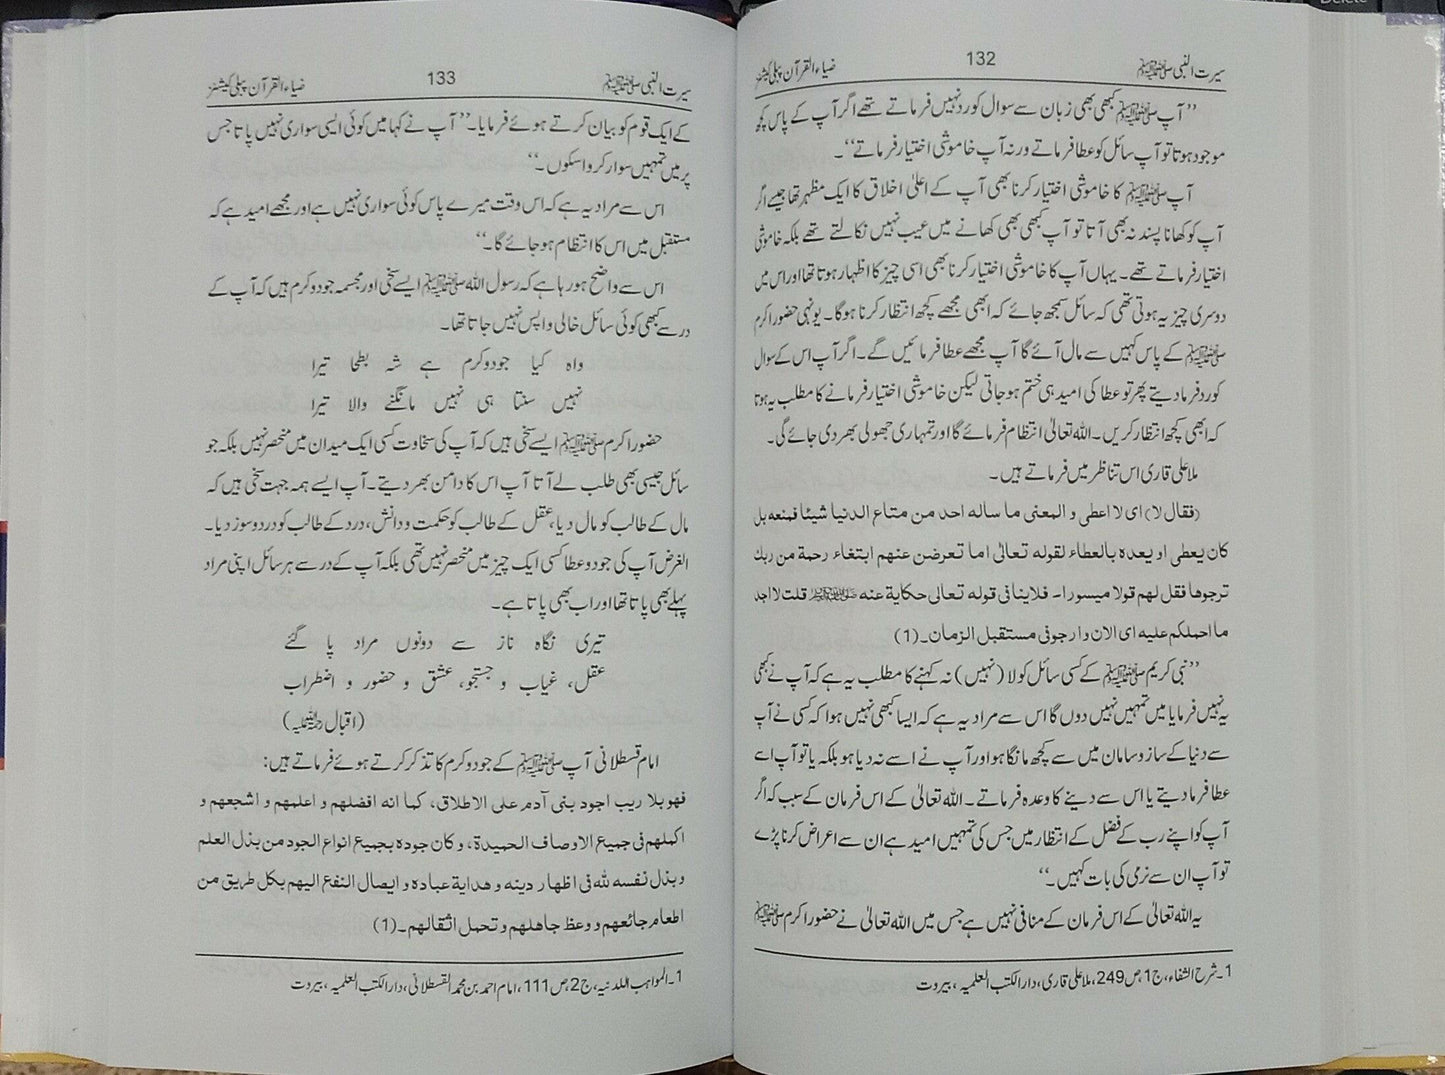 سیرت النبی ﷺ 132 ضیاء القرآن پبلی کیشنز
’’آپ ﷺ کبھی بھی زبان سے سوال کو رد نہیں فرماتے تھے اگر آپ کے پاس کچھ
موجود ہوتا تو آپ سائل کو عطا فرماتے ورنہ آپ خاموشی اختیار فرماتے‘‘۔
آپ ﷺ کا خاموشی اختیار کرنا بھی آپ کے اعلیٰ اخلاق کا ایک مظہر تھا جیسے اگر
آپ کو کھانا پسند نہ بھی آتا تو آپ کبھی بھی کھانے میں عیب نہیں نکالتے تھے بلکہ خاموشی
اختیار فرماتے تھے۔ یہاں آپ کا خاموشی اختیار کرنا بھی اسی چیز کا اظہار ہوتا تھا اور اس میں
دوسری چیز یہ ہوتی تھی کہ سائل سمجھ جائے کہ ابھی مجھے کچھ انتظار کرنا ہوگا۔ یونہی حضور اکرم
ﷺ کے پاس کہیں سے مال آئے گا آپ مجھے عطا فرمائیں گے۔ اگر آپ اس کے سوال
کو رد فرما دیتے پھر تو عطا کی امید ہی ختم ہو جاتی لیکن خاموشی اختیار فرمانے کا مطلب یہ ہوتا
کہ ابھی کچھ انتظار کریں۔ اللہ تعالیٰ انتظام فرمائے گا اور تمہاری جھولی بھر دی جائے گی۔
ملا علی قاری اس تناظر میں فرماتے ہیں۔
(فقال لا) ای لا اعطی و المعنی ما ساله احد من متاع الدنیا شیئا فمنعه بل
کان یعطی او یعده بالعطاء لقوله تعالیٰ اما تعرضن عنهم ابتغاء رحمة من ربك
ترجوها فقل لهم قولا میسورا۔ فلاینافی قوله تعالی حکایة عنه ﷺ قلت لا اجد
ما احملکم علیه ای الان و ارجو فی مستقبل الزمان۔(1)
’’نبی کریم ﷺ کے کسی سائل کو لا (نہیں) نہ کہنے کا مطلب یہ ہے کہ آپ نے کبھی
یہ نہیں فرمایا میں تمہیں نہیں دوں گا اس سے مراد یہ ہے کہ ایسا کبھی نہیں ہوا کہ کسی نے آپ
سے دنیا کے ساز و سامان میں سے کچھ مانگا ہو اور آپ نے اسے نہ دیا ہو بلکہ یا تو آپ اسے
عطا فرما دیتے یا اس سے دینے کا وعدہ فرماتے۔ اللہ تعالیٰ کے اس فرمان کے سبب کہ اگر
آپ کو اپنے رب کے فضل کے انتظار میں جس کی تمہیں امید ہے ان سے اعراض کرنا پڑے
تو آپ ان سے نرمی کی بات کہیں۔‘‘
یہ اللہ تعالیٰ کے اس فرمان کے منافی نہیں ہے جس میں اللہ تعالیٰ نے حضور اکرم ﷺ
1۔ شرح الشفاء، ج 1، ص 249، ملا علی قاری، دارالکتب العلمیہ، بیروت
سیرت النبی ﷺ 133 ضیاء القرآن پبلی کیشنز
کے ایک قوم کو بیان کرتے ہوئے فرمایا۔ ’’آپ نے کہا میں کوئی ایسی سواری نہیں پاتا جس
پر میں تمہیں سوار کروا سکوں۔‘‘
اس سے مراد یہ ہے کہ اس وقت میرے پاس کوئی سواری نہیں ہے اور مجھے امید ہے کہ
مستقبل میں اس کا انتظام ہو جائے گا۔‘‘
اس سے واضح ہو رہا ہے کہ رسول اللہ ﷺ ایسے سخی اور مجسمہ جود و کرم ہیں کہ آپ کے
در سے کبھی کوئی سائل خالی واپس نہیں جاتا تھا۔
واہ کیا جود و کرم ہے شہ بطحا تیرا
نہیں سنتا ہی نہیں مانگنے والا تیرا
حضور اکرم ﷺ ایسے سخی ہیں کہ آپ کی سخاوت کسی ایک میدان میں منحصر نہیں بلکہ جو
سائل جیسی بھی طلب لے آتا آپ اس کا دامن بھر دیتے۔ آپ ایسے ہمہ جہت سخی ہیں کہ
مال کے طالب کو مال دیا، عقل کے طالب کو حکمت و دانش، درد کے طالب کو درد و سوز دیا۔
الغرض آپ کی جود و عطا کسی ایک چیز میں منحصر نہیں تھی بلکہ آپ کے در سے ہر سائل اپنی مراد
پہلے بھی پاتا تھا اور اب بھی پاتا ہے۔
تیری نگاہ ناز سے دونوں مراد پا گئے
عقل، غیاب و جستجو، عشق و حضور و اضطراب
(اقبال رحمۃ اللہ علیہ)
امام قسطلانی آپ ﷺ کے جود و کرم کا تذکر کرتے ہوئے فرماتے ہیں:
فهو بلا ریب اجود بنی آدم علی الاطلاق، کما انه افضلهم و اعلمهم و اشجعهم و
اکملهم فی جمیع الاوصاف الحمیدة، و کان جوده بجمیع انواع الجود من بذل العلم
و بذل نفسه لله فی اظهار دینه و هدایة عباده و ایصال النفع الیهم بکل طریق من
اطعام جائعهم و وعظ جاهلهم و تحمل اثقالهم۔(1)
1۔ المواہب اللدنیہ، ج 2، ص 111، امام احمد بن محمد القسطلانی، دارالکتب العلمیہ، بیروت
Delete